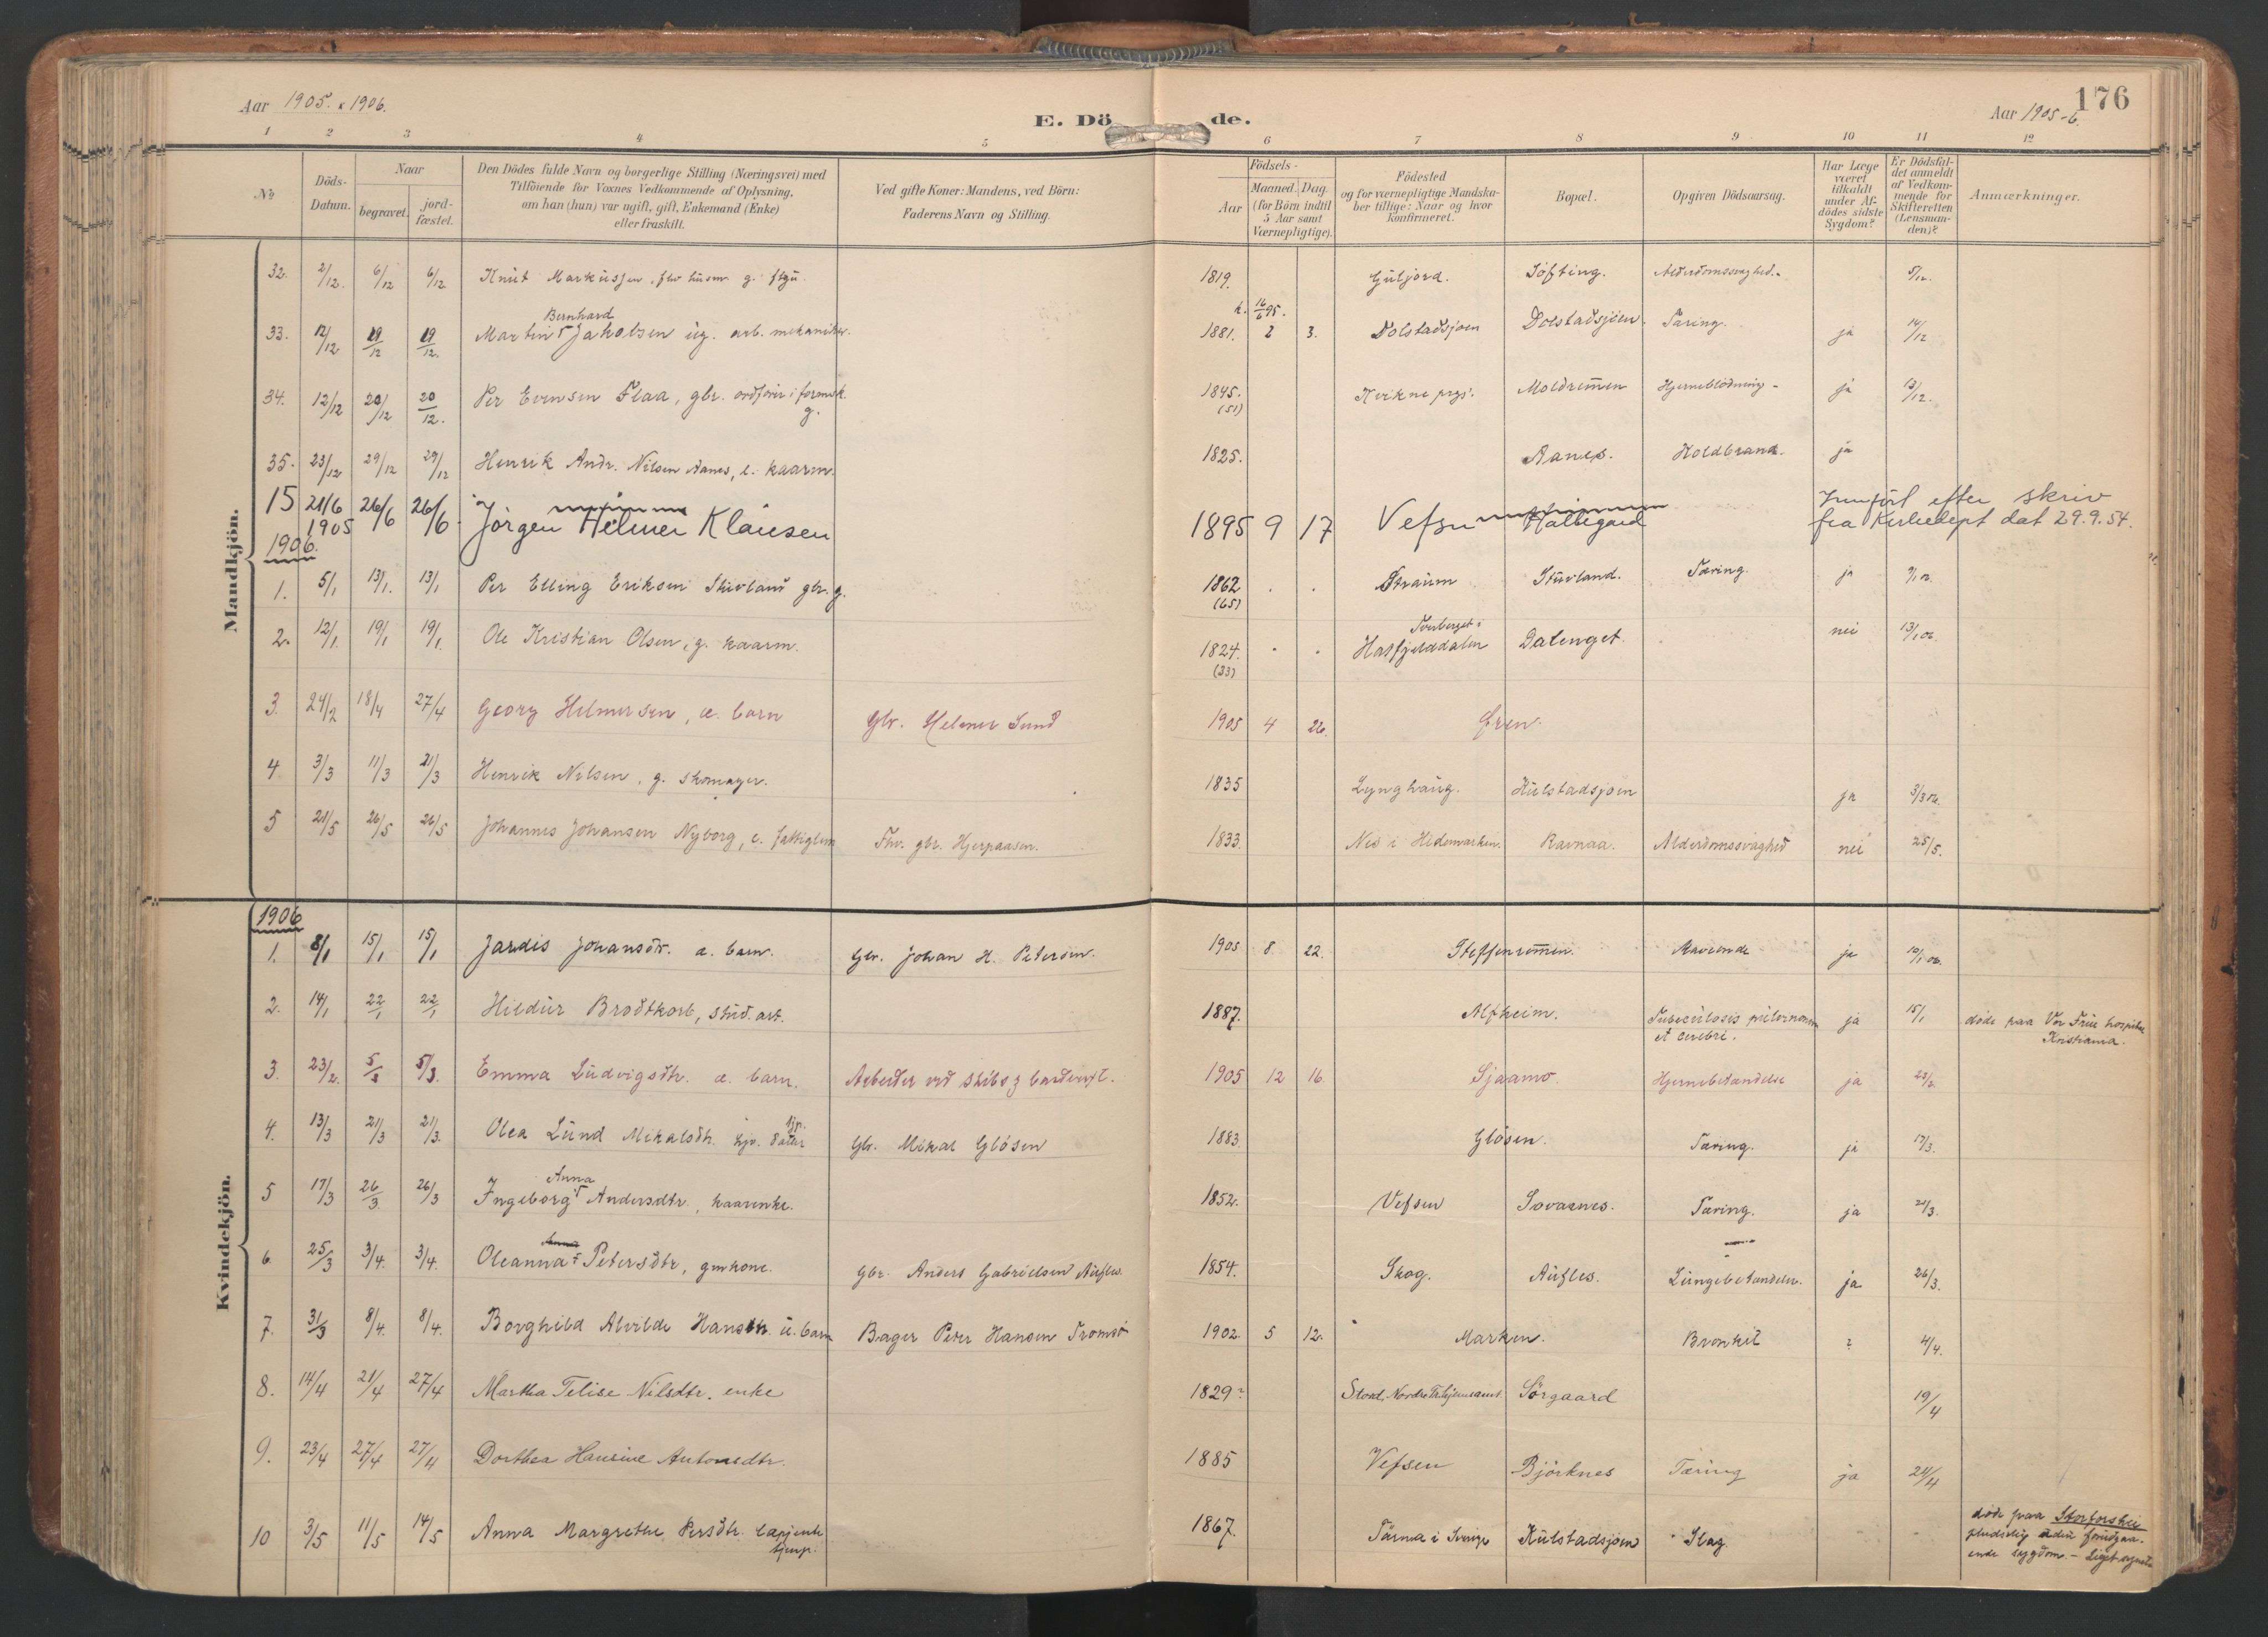 Aar 1905. & 1906.
E. Dö de.
Aar 1905-6.
176
1 2 3 4 5 6 7 8 9 10 11 12
No
Döds-Datum.
Naar
begravet.
jord-fæstet.
Den Dödes fulde Navn og borgerlige Stilling (Næringsvei) med
Tilföiende for Voxnes Vedkommende af Oplysning,
om han (hun) var ugift, gift, Enkemand (Enke)
eller fraskilt.
Ved gifte Koner: Mandens, ved Börn:
Faderens Navn og Stilling.
Födsels-
Aar
Maaned. Dag.
(for Börn indtil
5 Aar samt
Værnepligtige).
Födested
og for værnepligtige Mandska-
ber tillige: Naar og hvor
konfirmeret.
Bopæl.
Opgiven Dödsaarsag.
Har Læge
været
tilkaldt
under Af-
dödes sidste
Sygdom?
Er Dödsfal-
det anmeldt
af Vedkom-
mende for
Skifteretten
(Lensman-
den)?
Anmærkninger.
Mandkjön.
32. 2/12. 6/12 6/12. Knut Markussen, fhv husm. g. 1819. Guljord. Söfting. Alderdomssvaghed. 5/12.
Bernhard
k. 16/6 95.
33. 12/12 19/12 19/12. Martin Jakobsen ug. arb. mekaniker. 1881. 2 3. Dolstadsjoen Dolstadsjoen. Tæring. ja 14/12
34. 12/12 20/12 20/12. Per Evensen Flaa, gbr. ordförer i formsk. g. 1845. (51) Kvikne prgj. Moldremen Hjerneblödning - ja 13/12.
35. 23/12 29/12 29/12 Henrik Andr. Nilsen Aanes, e. kaarm. 1825. Aanes. Koldbrand. ja
15 21/6 1905 26/6 26/6. Jörgen Helmer Klausen 1895 9 17 Vefsn Hallegard Innfört efter skriv
fra Kirkedept dat 29.9.54.
1906.
1. 5/1 13/1. 13/1 Per Elling Eriksen Stuvland gbr. g. 1862 (65) . . Straum Stuvland. Tæring. ja 9/1 06.
2. 12/1. 19/1 19/1. Ole Kristian Olsen, g. kaarm. 1824. (33) . . Hatfjelddalen Dalenget. nei 13/1 06.
3. 24/2 18/4 27/4 Georg Helmersen, u. barn Gbr. Helmer Lund 1905 4 26. Ören.
4 3/3 11/3 21/3 Henrik Nilsen, g. skomager. 1835 Lynghaug. Kulstadsjoen ja 3/3 06.
5 21/5 26/5 26/5 Johannes Johansen Nyborg, e. fattiglem Fhv. gbr. Hjerpaasen. 1833. Nes i Hedemarken. Ravnaa. Alderdomssvaghed nei 25/5.
Kvindekjön.
1906
1. 8/1 15/1 15/1 Jardis Johansdtr. u. barn. Gbr. Johan H. Petersen. 1905 8 22. Steffenremen. Mavæonde ja 10/1 06.
2. 14/1 22/1 22/1 Hildur Brodtkorb, stud. art. 1887. Alfheim. Tuberculosis pulmonum
et cerebri. ja 15/1 döde paa Vor Frue hospital
Kristiania.
3. 23/2. 5/3 5/3. Emma Ludvigsdtr. u. barn. Arbeider ved 1905 12 16. Sjaamo. Hjernebetændelse ja 28/2
4. 13/3 21/3 21/3. Olea Lund Mikalsdtr. gbr. datter Gbr. Mikal Glösen 1883. Glösen. Tæring. ja 17/3.
Anna
5 17/3 26/3. 26/3 Ingeborg Andersdtr., kaarenke. 1852. Vefsen Sovasnes. Tæring. ja 21/3.
6 25/3 3/4. 3/4. Oleanna Petersdtr, gmkone. Gbr. Anders Gabrielsen Aufles. 1854. Skog. Aufles. Lungebetændelse. ja 26/3.
7. 31/3 8/4. 8/4. Borghild Alvilde Hansdtr. u. barn Bager Peter Hansen Tromsö 1902. 5 12. Marken. Bronkit ? 4/4.
8. 14/4 21/4 27/4 Martha Telise Nilsdtr. enke 1829? Stod, Nordre Trhjemsamt. Sörgaard 19/4
9. 23/4 27/4 27/4 Dorthea Hansine Antonsdtr. 1885 Vefsen Björknes Tæring ja 24/4
10 3/5 11/5 14/5 Anna Margrethe Persdtr. lapjente 1867. Tärna i Sverige Kulstadsjoen Slag döde paa Storforshei
pludselig uden foregaa-
ende sygdom. -